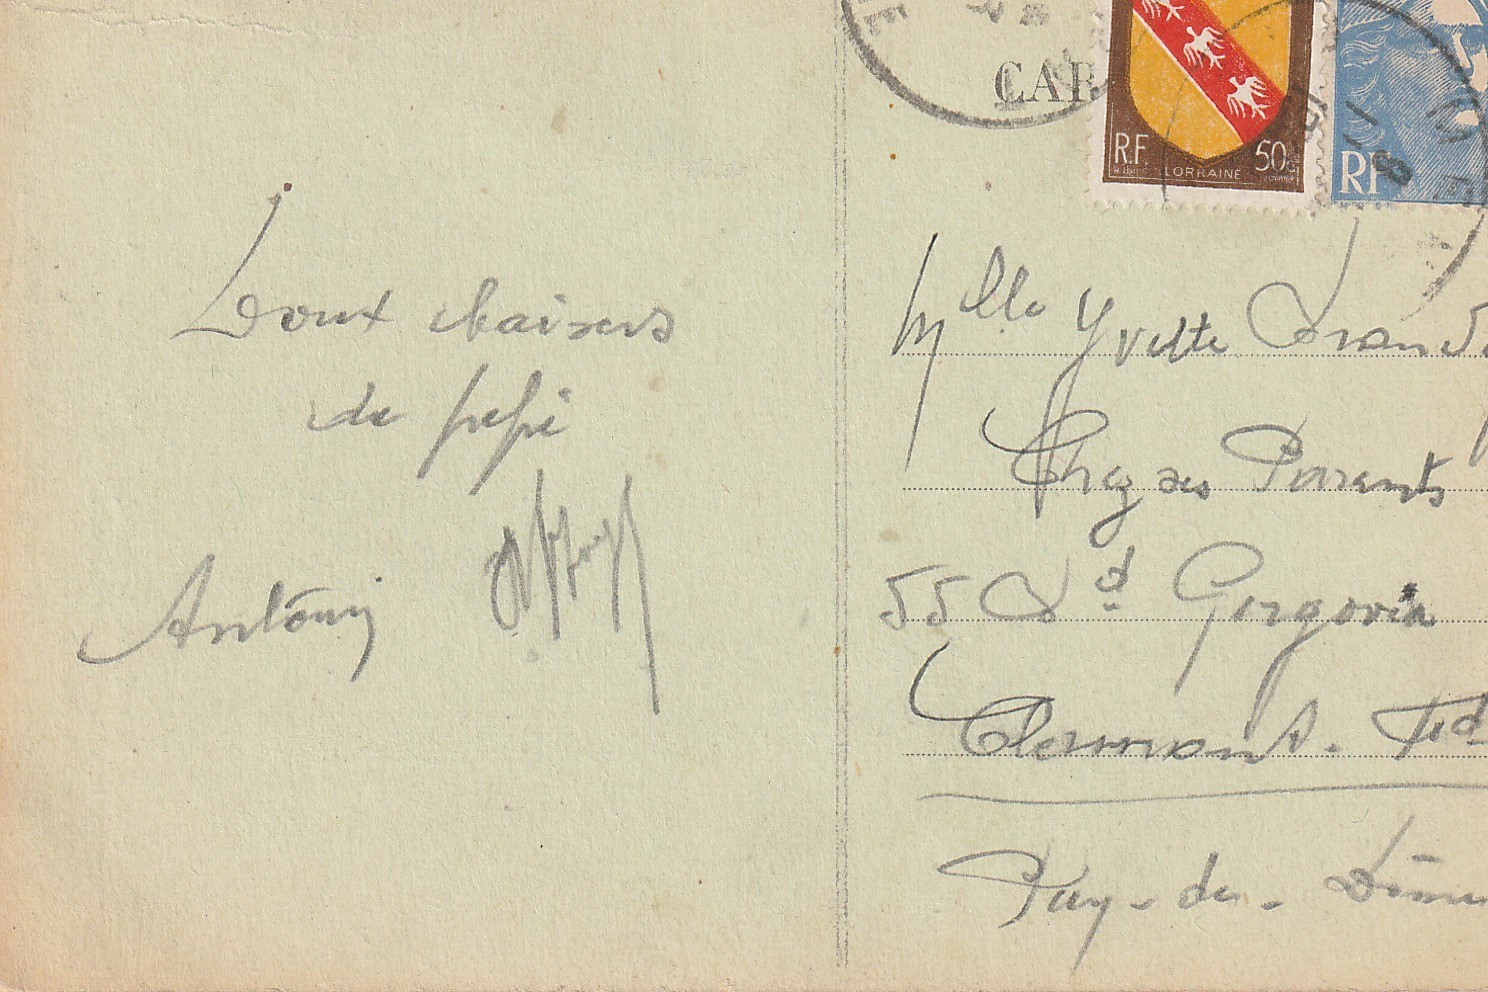 CAR
R.F. 50c
LORRAINE
RF
Doux baisers
de pépé
Antonin
Mlle Yvette
Chez ses Parents
55 Bd Gergovia
Clermont-Fd
Puy-de-Dôme